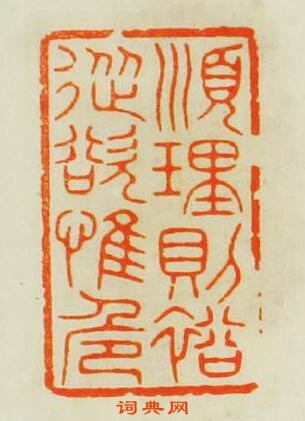 順理則裕
從欲惟危
词典网